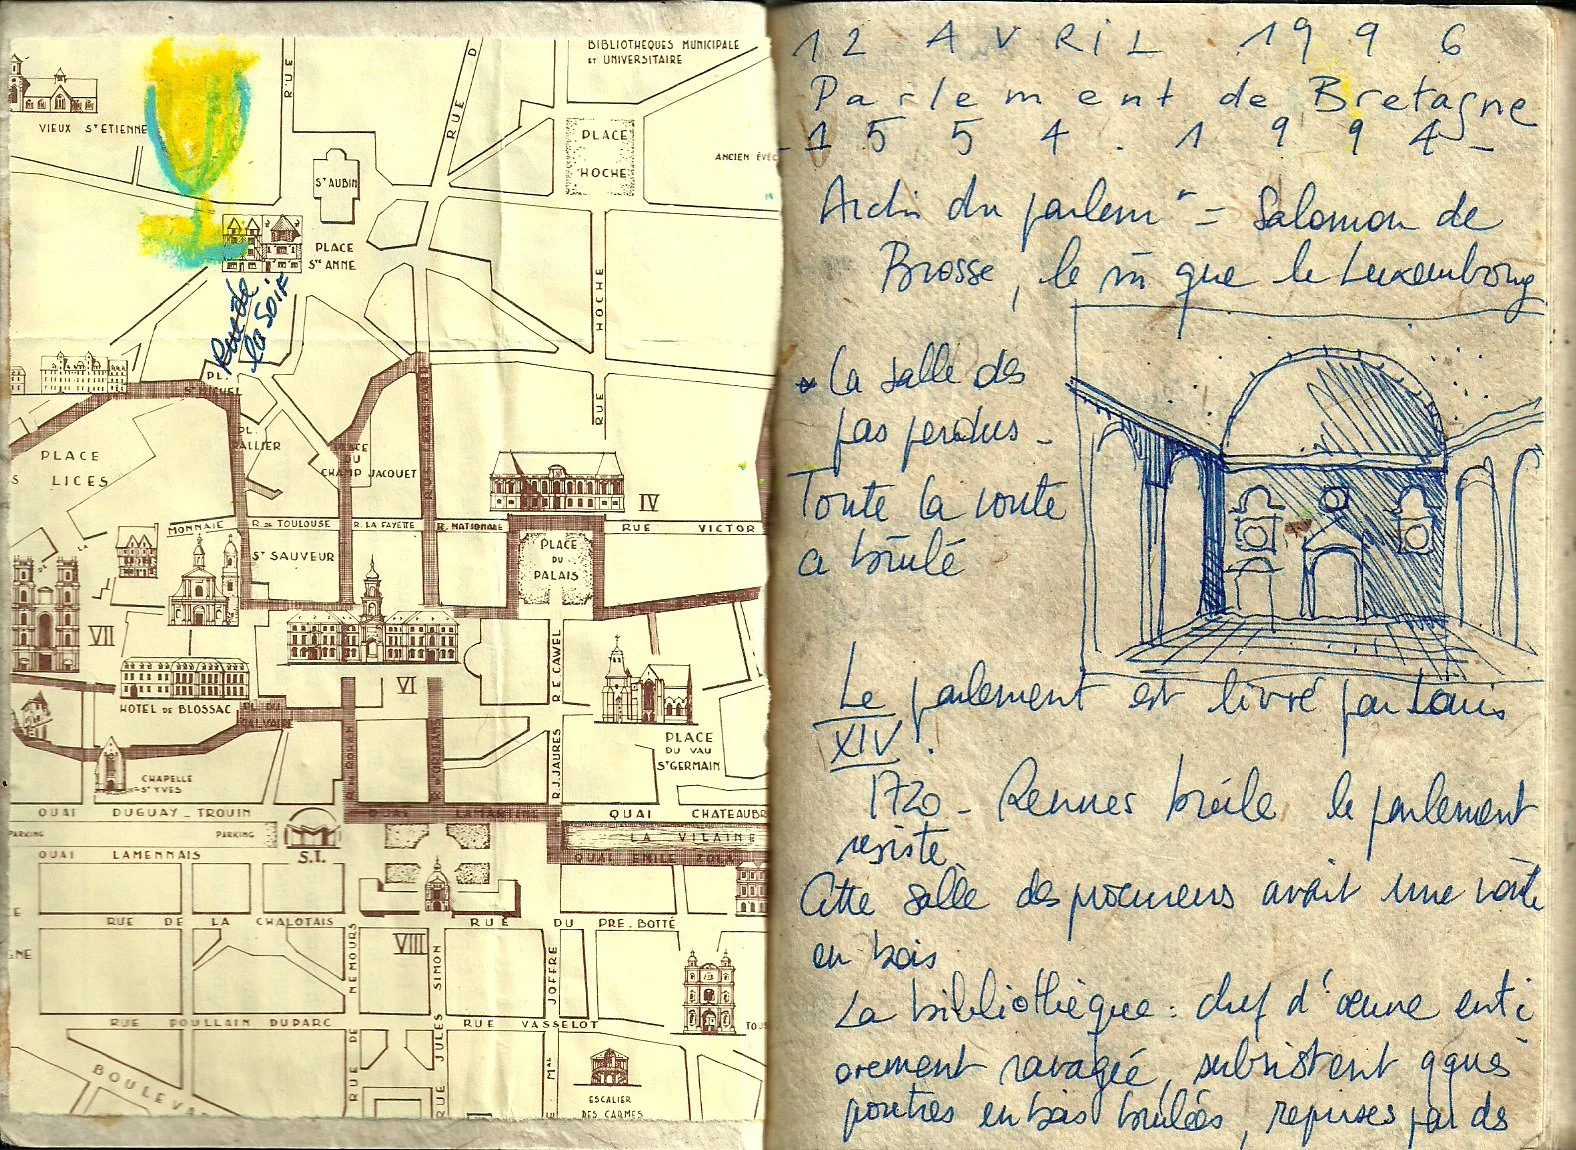 BIBLIOTHEQUES MUNICIPALE
ET UNIVERSITAIRE
RUE
RUE D
VIEUX St ETIENNE
PLACE
HOCHE
ANCIEN ÉVÊC
St AUBIN
PLACE
Ste ANNE
Rue de
la Soif
RUE HOCHE
PL.
St MICHEL
PL.
RALLIER
PLACE
DU
CHAMP JACQUET
PLACE
S LICES
IV
MONNAIE
R. DE TOULOUSE
R. LA FAYETTE
R. NATIONALE
RUE VICTOR
St SAUVEUR
PLACE
DU
PALAIS
VII
VI
R E CAWEL
HOTEL DE BLOSSAC
PL. DU
CALVAIRE
PLACE
DU VAU
St GERMAIN
R. DE ROHAN
R. D'ORLEANS
R. J. JAURES
CHAPELLE
St YVES
QUAI DUGUAY-TROUIN
QUAI LAMARTINE
QUAI CHATEAUBR
PARKING
PARKING
S.I.
LA VILAINE
QUAI LAMENNAIS
QUAI EMILE ZOLA
RUE DE LA CHALOTAIS
RUE DU PRE. BOTTÉ
VIII
RUE DE NEMOURS
RUE JULES SIMON
Mal JOFFRE
RUE POULLAIN DUPARC
RUE VASSELOT
TOU
BOULEVAR
ESCALIER
DES CARMES
12 AVRIL 1996
Parlement de Bretagne
- 1554 . 1994 -
Archi du parlemt = Salomon de
Brosse, le m̂ que le Luxembourg
La salle des
pas perdus -
Toute la voute
a brûlé
Le parlement est livré par Louis
XIV.
1720 - Rennes brûle le parlement
resiste
Cette salle des procureurs avait une voûte
en bois
La bibliothèque : chef d'œuvre enti
èrement ravagée, subsistent qques
poutres en bois brûlées, reprises par ds